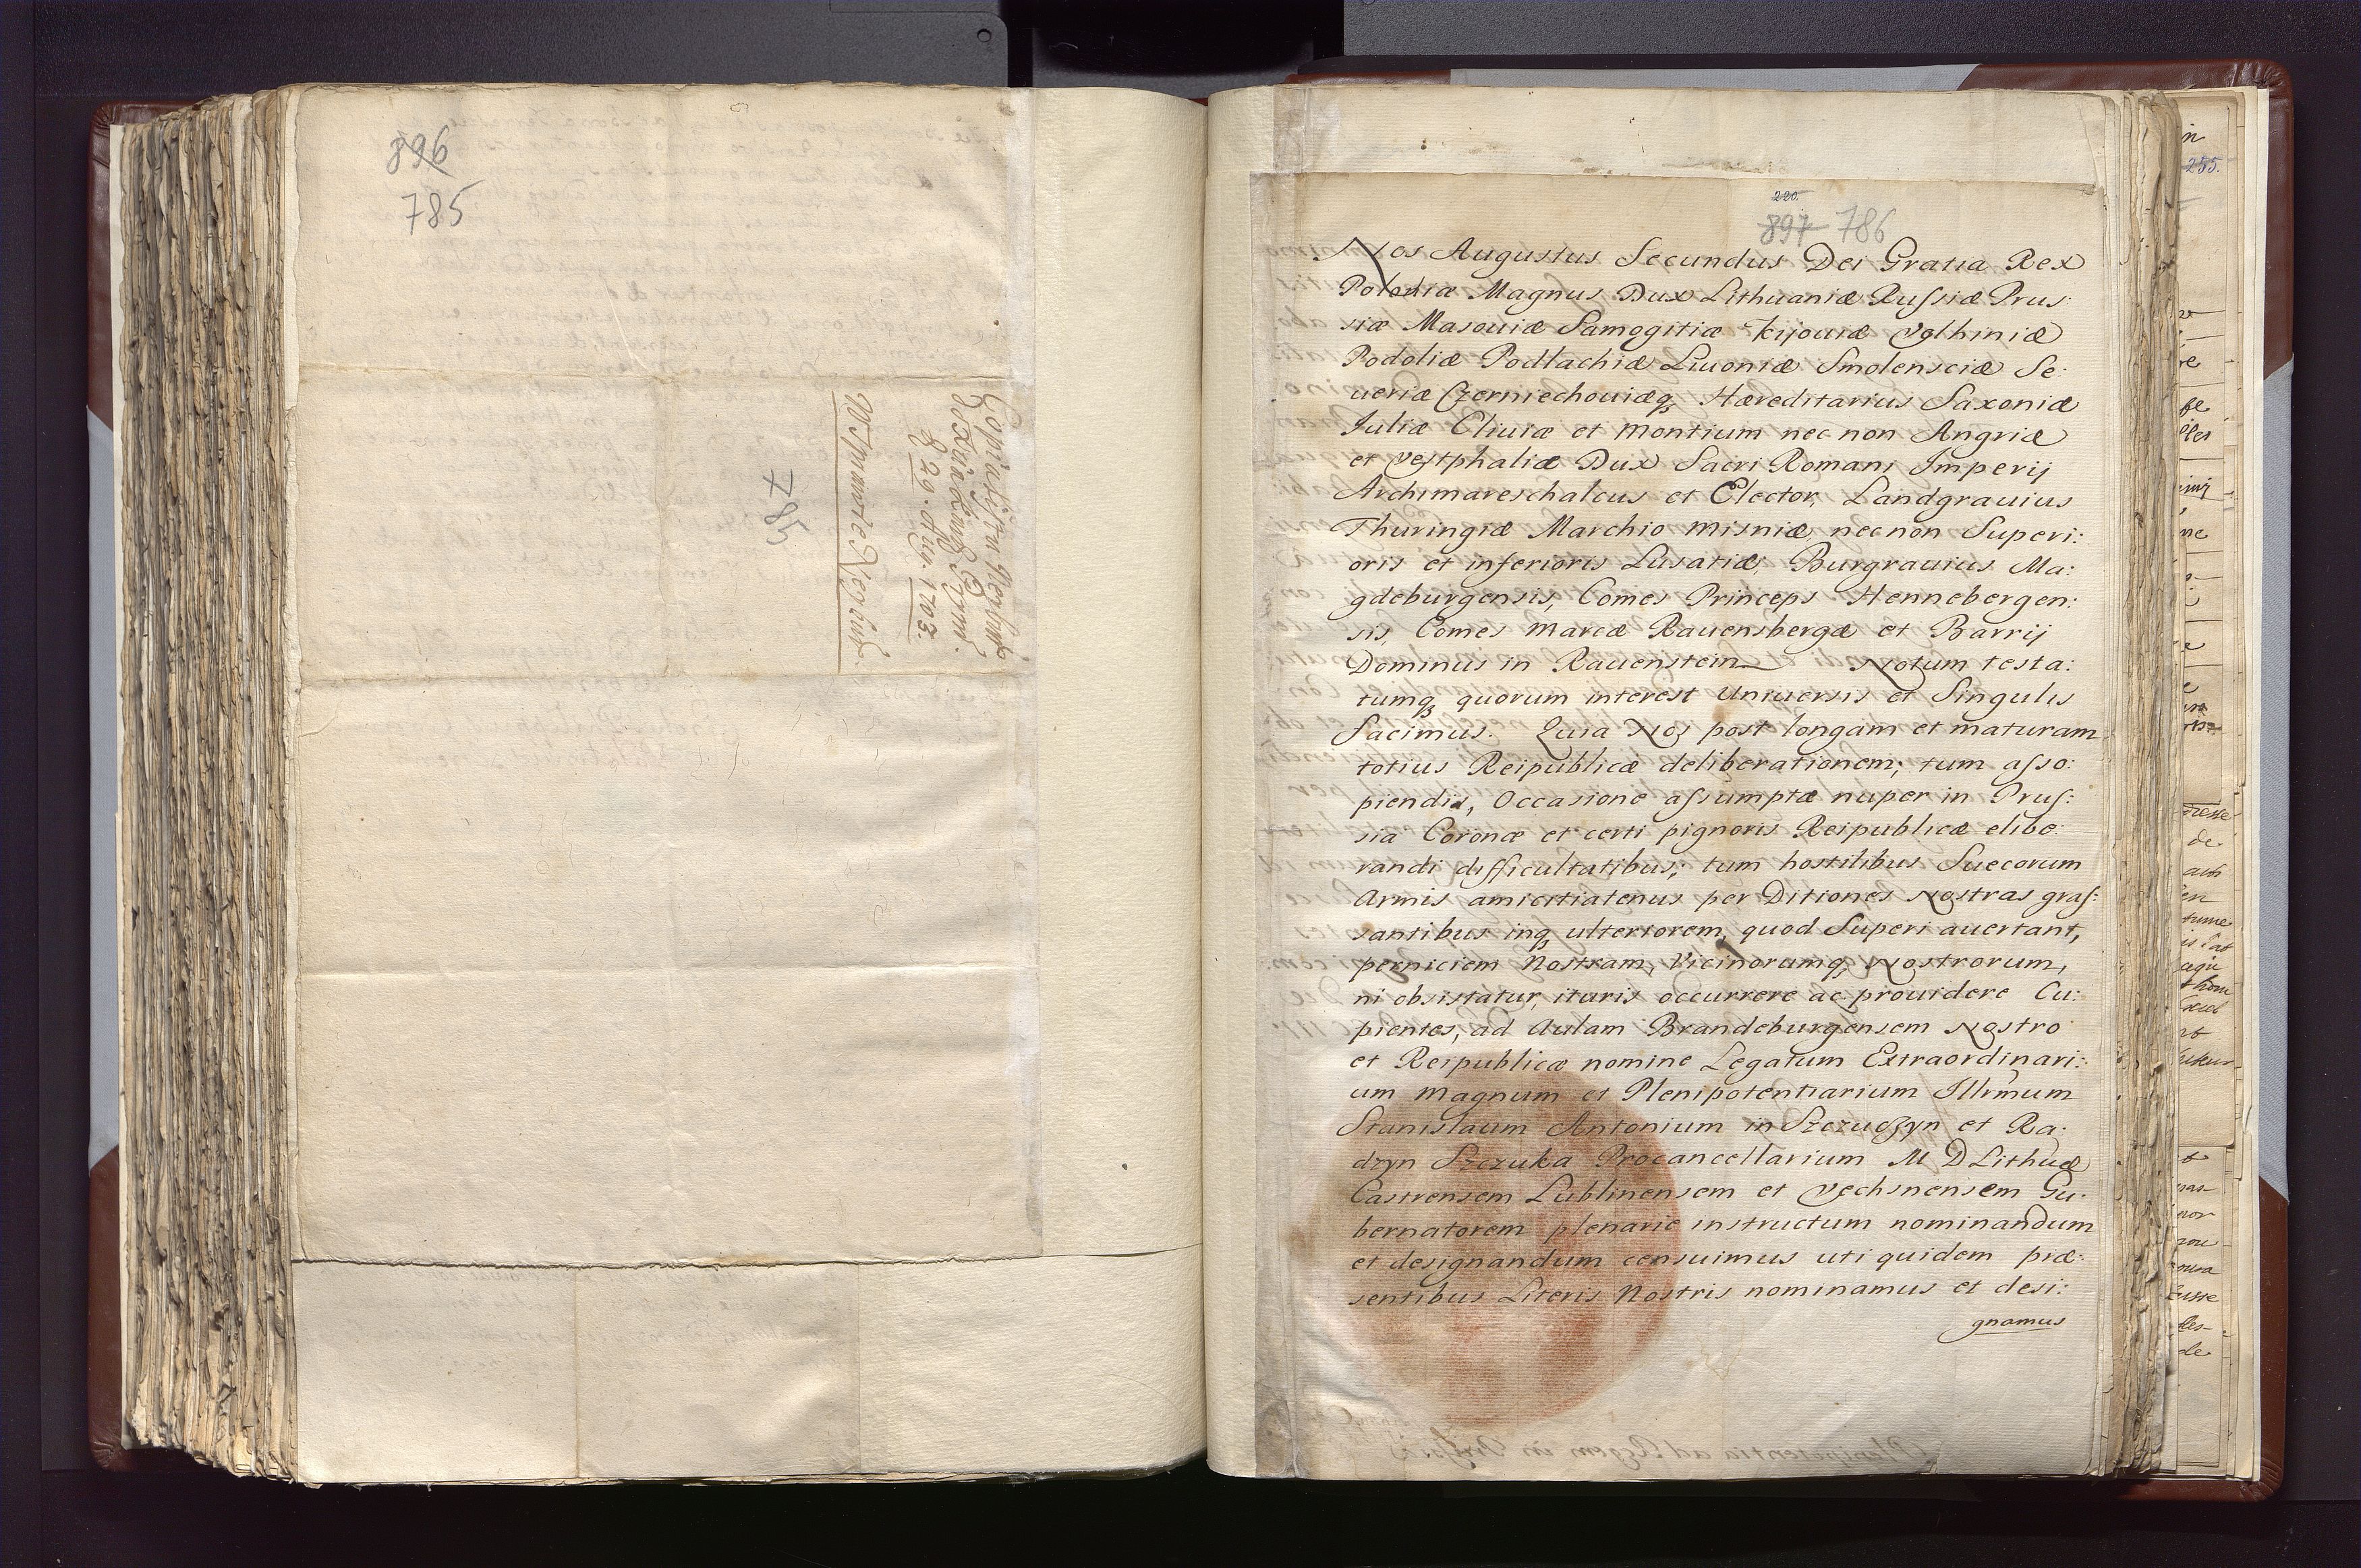 896
785
Copia listu Negrubs
do Xcia Kinq Prymi.
d 29. Aug. 1703.
W Sprawie Negrub.
785
220.
897 786
Nos Augustus Secundus Dei Gratia Rex
Poloniæ Magnus Dux Lithuaniæ Russiæ Prus:
siæ Masouiæ Samogitiæ Kijouiæ Volhiniæ
Podoliæ Podlachiæ Liuoniæ Smolensciæ Se:
ueriæ Czerniechouiæq; Hæreditarius Saxoniæ
Juliæ Cliuiæ et Montium nec non Angriæ
et Vestphaliæ Dux Sacri Romani Imperij
Archimareschalcus et Elector, Landgrauius
Thuringiæ Marchio Misniæ, nec non Superi:
oris et inferioris Lusatiæ, Burgrauius Ma:
gdeburgensis, Comes Princeps Hennebergen:
sis, Comes Marcæ Rauensbergæ et Barrij
Dominus in Rauenstein Notum testa:
tumq; quorum interest Uniuersis et Singulis
Facimus. Quia Nos post longam et maturam
totius Reipublicæ deliberationem; tum asso:
piendis, Occasione assumptæ nuper in Prus:
sia Coronæ et certi pignoris Reipublicæ elibe:
randi difficultatibus; tum hostilibus Suecorum
Armis amicitiatenus per Ditiones Nostras gras:
santibus inq; ulteriorem, quod Superi auertant,
perniciem Nostram, Vicinorumq; Nostrorum,
ni obsistatur, ituris occurrere ac prouidere Cu:
pientes, ad Aulam Brandeburgensem Nostro
et Reipublicæ nomine Legatum Extraordinari:
um Magnum et Plenipotentiarium Illrmum
Stanislaum Antonium in Szczuczyn et Ra:
dzyn Szczuka Procancellarium M D Lithuæ
Castrensem Lublinensem et Vechsnensem Gu:
bernatorem plenarie instructum nominandum
et designandum censuimus uti quidem præ:
sentibus Literis Nostris nominamus et desi:
gnamus